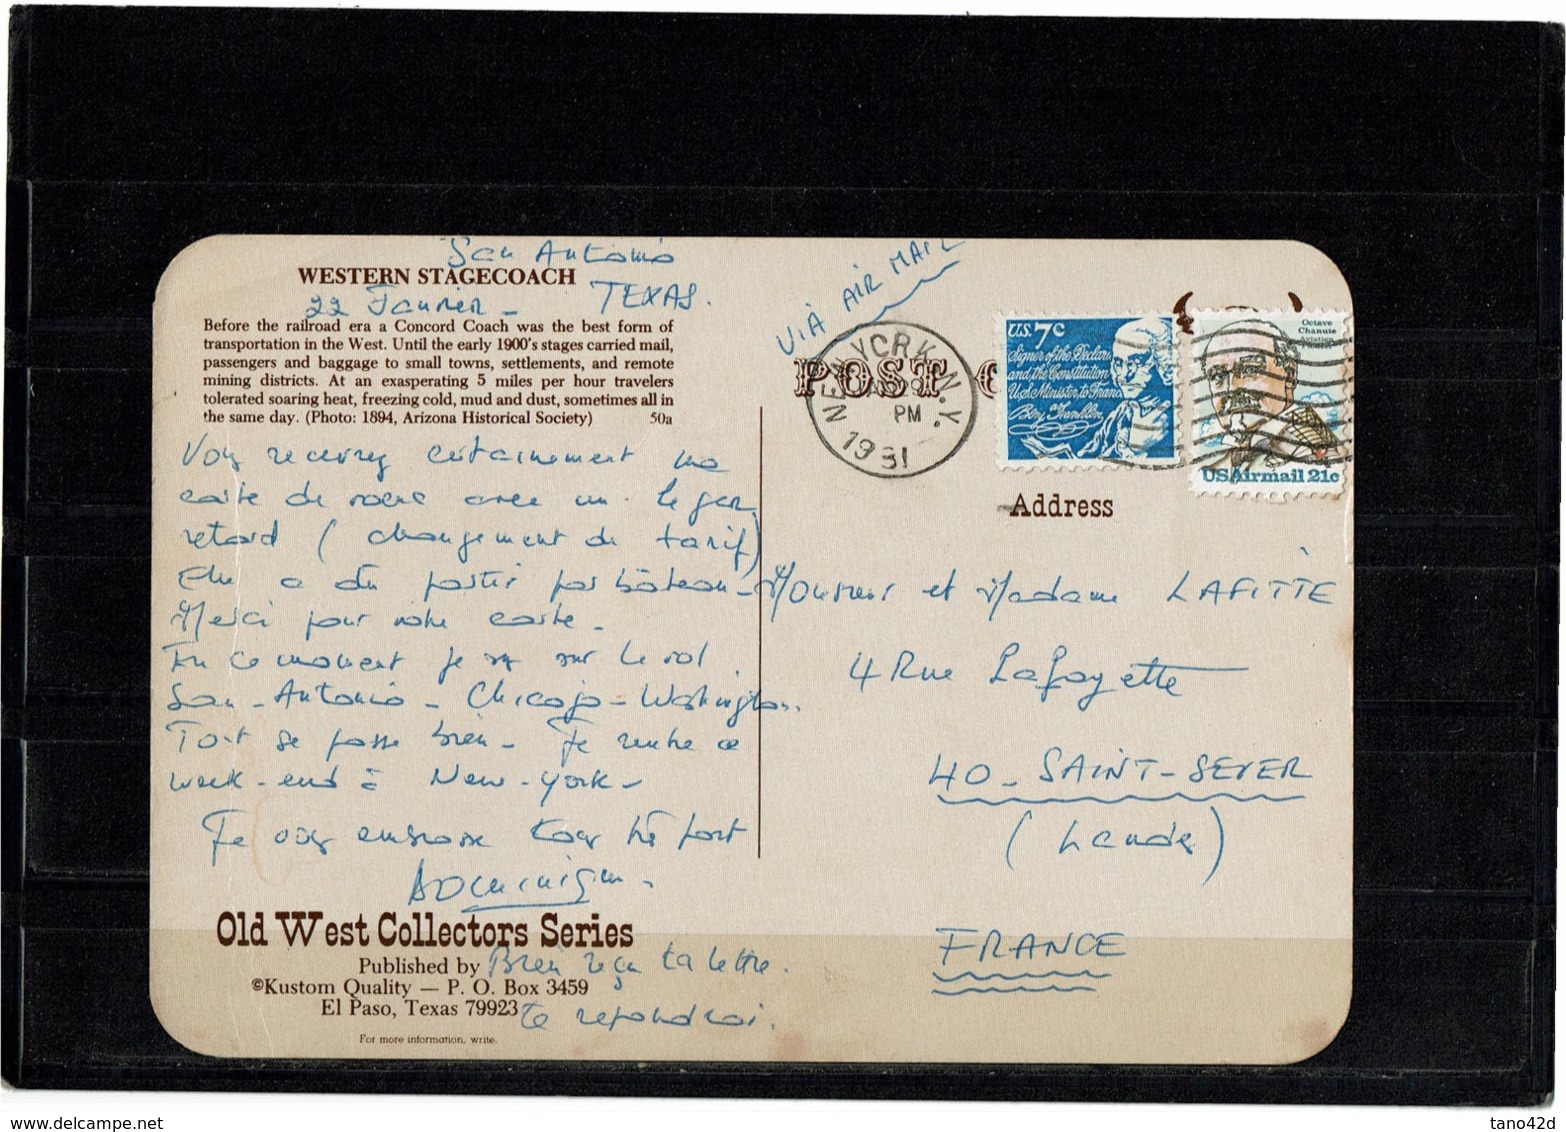 San Antonio
WESTERN STAGECOACH
22 Janvier - TEXAS.
Before the railroad era a Concord Coach was the best form of
transportation in the West. Until the early 1900's stages carried mail,
passengers and baggage to small towns, settlements, and remote
mining districts. At an exasperating 5 miles per hour travelers
tolerated soaring heat, freezing cold, mud and dust, sometimes all in
the same day. (Photo: 1894, Arizona Historical Society) 50a
Vous recevrez certainement une
carte de vœux avec un leger
retard (changement de tarif)
Elle a dû partir par bâteau -
Merci pour votre carte -
En ce moment je suis sur le vol
San-Antonio - Chicago - Washington.
Tout se passe bien - Je rentre ce
week-end à New-York -
Je vous embrasse tous très fort
Dominique -
Old West Collectors Series
Published by
©Kustom Quality — P. O. Box 3459
El Paso, Texas 79923
For more information, write.
Bien reçu ta lettre.
te repondrai.
VIA AIR MAIL
POST C
NEW YORK, N.Y.
PM
1981
U.S. 7c
Signer of the Declara
and the Constitution
U.S. Minister to Franc
Benj Franklin
Octave
Chanute
Aviation
Pioneer
USAirmail 21c
Address
Monsieur et Madame LAFITTE
4 Rue Lafayette
40 - SAINT-SEVER
(Landes)
FRANCE
delcampe.net
tano42d